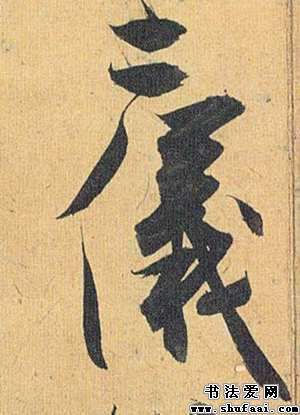 二儀
书法爱网
www.shufaai.com